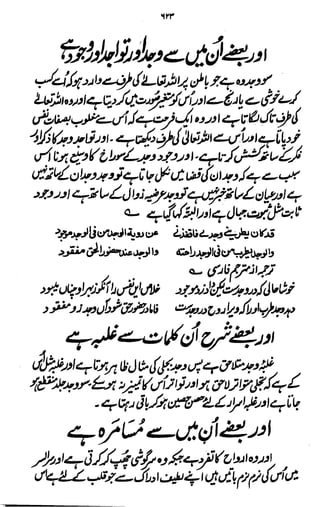 ۶۲۳
اور بعضے اُن میں سے وجد اور تواجد اور وجود ہے
سو وجد وہ ہے جو باطن پر اللہ تعالےٰ کی طرف سے وارد ہو کہ اُسے کسب
کرے خوشی سے یا رنج سے اور اُس کو متغیر صورت میں کر دیتا ہے اور وہ اللہ تعالےٰ
کی طرف تاک لگاتا ہے اور وہ ایک فرحت ہے کہ اُس سے مغلوب بصفات نفس
خود پاتا ہے اور اُس سے اللہ تعالیٰ کی طرف دیکھتا ہے۔ اور تواجد وجد کا ذکر اور
فکر کے ساتھ کشش کرنا ہے۔ اور وجود وجد کے سوراخ کا وسیع ہونا اُس
سبب سے ہے کہ وجدان کی فضا میں نکل جاتا ہے تو وجد وجدان کے ساتھ نہیں
ہے اور عیان کے ساتھ خبر نہیں ہے تو وجد عرضۂ زوال کے ساتھ ہے اور وجود
ثابت مثل ثبوت جبال ہے اور البتہ کہا گیا ہے
قد کان یطربنی وجدی فاقعدنی عن رویۃ الوجد من فی الوجد موجود
والوجد یطرب من فی الوجد راحتہ والوجد عند حضور الحق مفقود
ترجمہ از مترجم فارسی
خوشا حالے کہ در وجدت لیکن نادر موجود خلاص این نفس را آنکو زہر او چنان نابود
دہد وجد طرب او را کہ ویرا روح در وجدست فاما در حضور حق شود آن وجد زو مفقود
اور بعضے شرح اُن کلمات سے غلبہ ہے
غلبہ وجد متلاحق ہے پس وجد بجلی کی مثال ظاہر ہوتا ہے اور غلبہ مثل اُس
کے ہے کہ بجلی متواتر لاحق ہو اور تواتر اُس کا تمیز نہ ہو سکے سو وجد جلد منقطع ہو
جاتا ہے اور غلبہ اسرار کے لئے حصن حصین ہو کر باقی رہتا ہے۔
اور بعضے اُن میں سے مُسامرہ ہے
اور وہ ارواح کا تفرد ہے جبکہ وہ سرگوشی چھپ کر کرتی ہے اور سر السر
میں اُس کی نرم نرم باتیں ہیں اپنے لطیف ادراک سے جو قلب کے لئے ہے اس